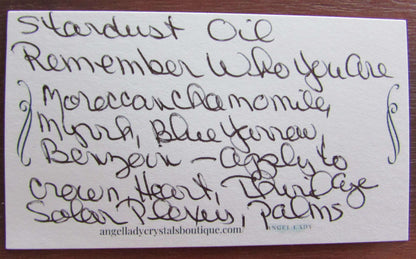 Stardust Oil
Remember Who You Are
Moroccan Chamomile,
Myrrh, Blue Yarrow,
Benzoin - apply to
crown, Heart, Third Eye
Solar Plexus, Palms
angelladycrystalsboutique.com ANGEL LADY